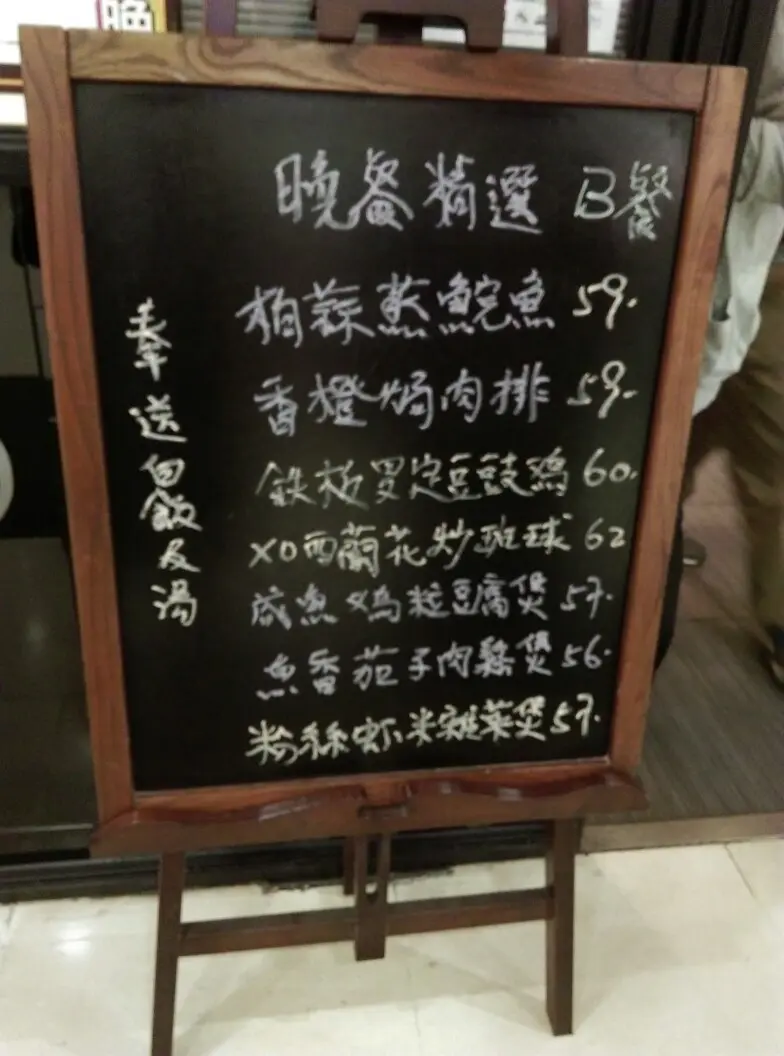 晚
晚餐精選 B餐
柏蒜蒸鯇魚 59.
香橙焗肉排 59.
鉄板罗定豆豉鸡 60.
XO西蘭花炒班球 62
咸魚鸡粒豆腐煲 57.
魚香茄子肉鬆煲 56.
粉絲虾米雜菜煲 57.
奉送白飯及湯